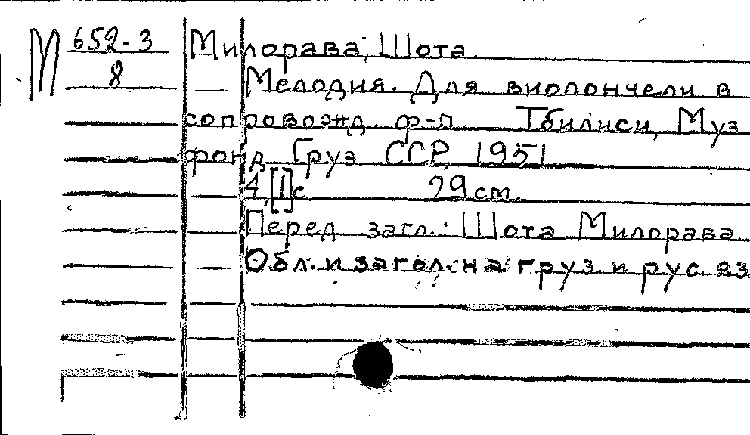 М 652-3
8
Милорава, Шота.
Мелодия. Для виолончели в
сопровожд. ф-п. Тбилиси, Муз.
фонд Груз ССР, 1951
4,[1]с. 29см.
Перед загл.: Шота Милорава.
Обл. и загол. на груз и рус. яз